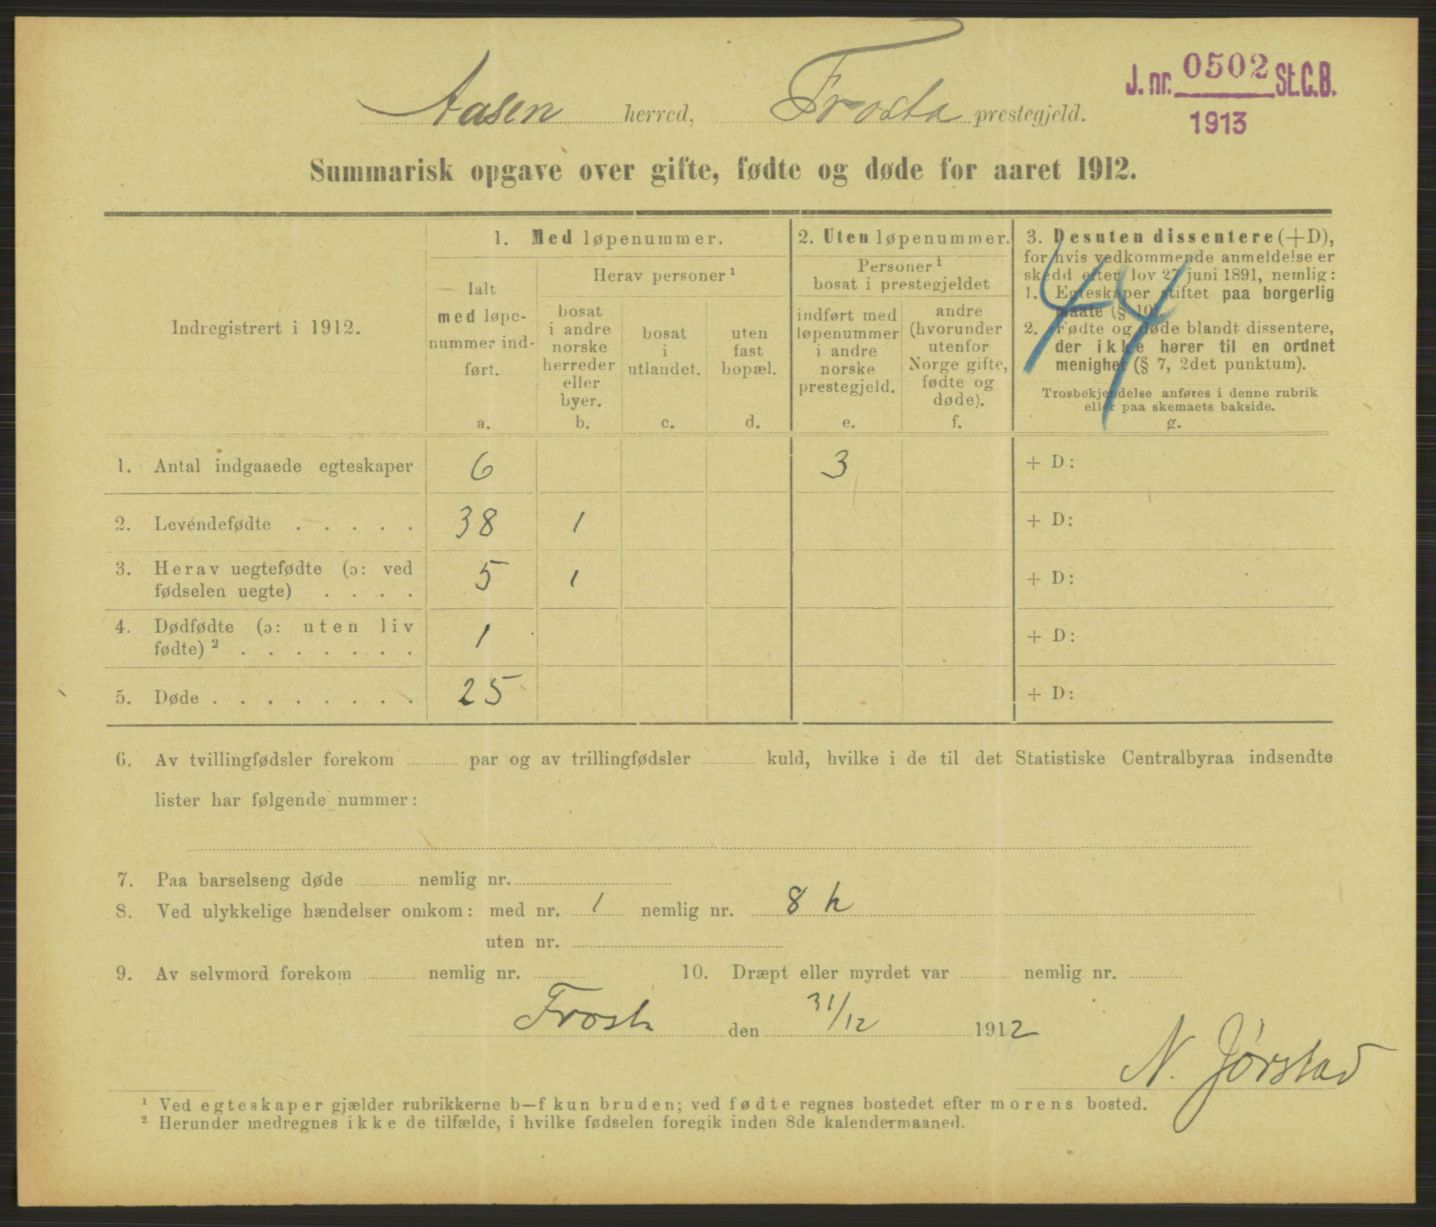 Aasen herred, Frosta prestegjeld.
J. nr. 0502 St.C.B.
1913
Summarisk opgave over gifte, fødte og døde for aaret 1912.
Indregistrert i 1912.
1. Med løpenummer.
Ialt
med løpe-
nummer ind-
ført.
a.
Herav personer ¹
bosat
i andre
norske
herreder
eller
byer.
b.
bosat
i
utlandet.
c.
uten
fast
bopæl.
d.
2. Uten løpenummer.
Personer ¹
bosat i prestegjeldet
indført med
løpenummer
i andre
norske
prestegjeld.
e.
andre
(hvorunder
utenfor
Norge gifte,
fødte og
døde).
f.
3. Desuten dissentere (+D),
for hvis vedkommende anmeldelse er
skedd efter lov 27 juni 1891, nemlig:
1. Egteskaper stiftet paa borgerlig
maate (§ 10).
2. Fødte og døde blandt dissentere,
der ikke hører til en ordnet
menighet (§ 7, 2det punktum).
Trosbekjendelse anføres i denne rubrik
eller paa skemaets bakside.
g.
44
1. Antal indgaaede egteskaper 6 3 + D:
2. Levendefødte . . . . . 38 1 + D:
3. Herav uegtefødte (ɔ: ved
fødselen uegte) . . . . 5 1 + D:
4. Dødfødte (ɔ: uten liv
fødte) ² . . . . . . . 1 + D:
5. Døde . . . . . . . . 25 + D:
6. Av tvillingfødsler forekom par og av trillingfødsler kuld, hvilke i de til det Statistiske Centralbyraa indsendte
lister har følgende nummer:
7. Paa barselseng døde nemlig nr.
8. Ved ulykkelige hændelser omkom: med nr. 1 nemlig nr. 8 k
uten nr.
9. Av selvmord forekom nemlig nr. 10. Dræpt eller myrdet var nemlig nr.
Frosta den 31/12 1912
N. Jørstad
¹ Ved egteskaper gjælder rubrikkerne b—f kun bruden; ved fødte regnes bostedet efter morens bosted.
² Herunder medregnes ikke de tilfælde, i hvilke fødselen foregik inden 8de kalendermaaned.